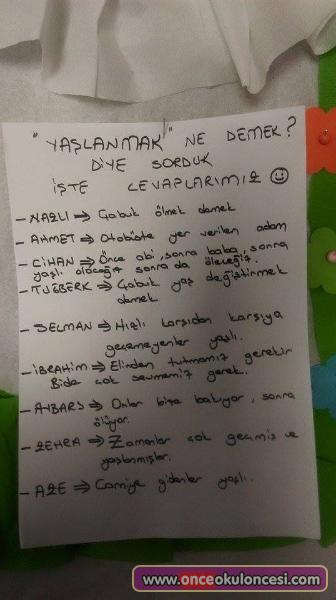 "YAŞLANMAK" NE DEMEK?
DİYE SORDUK
İŞTE CEVAPLARIMIZ ☺
- NAZLI ⇒ Çabuk ölmek demek
- AHMET ⇒ Otobüste yer verilen adam
- CİHAN ⇒ Önce abi, sonra baba, sonra
yaşlı olacağız sonra da öleceğiz.
- TUĞBERK ⇒ Çabuk yaş değiştirmek
demek
- SELMAN ⇒ Hızlı karşıdan karşıya
geçemeyenler yaşlı.
- İBRAHİM ⇒ Elinden tutmamız gerekir
Bide çok sevmemiz gerek.
- AYBARS ⇒ Onlar bize bakıyor, sonra
ölüyor.
- ZEHRA ⇒ Zamanları çok geçmiş ve
yaşlanmışlar.
- AZE ⇒ Camiye gidenler yaşlı.
www.onceokuloncesi.com